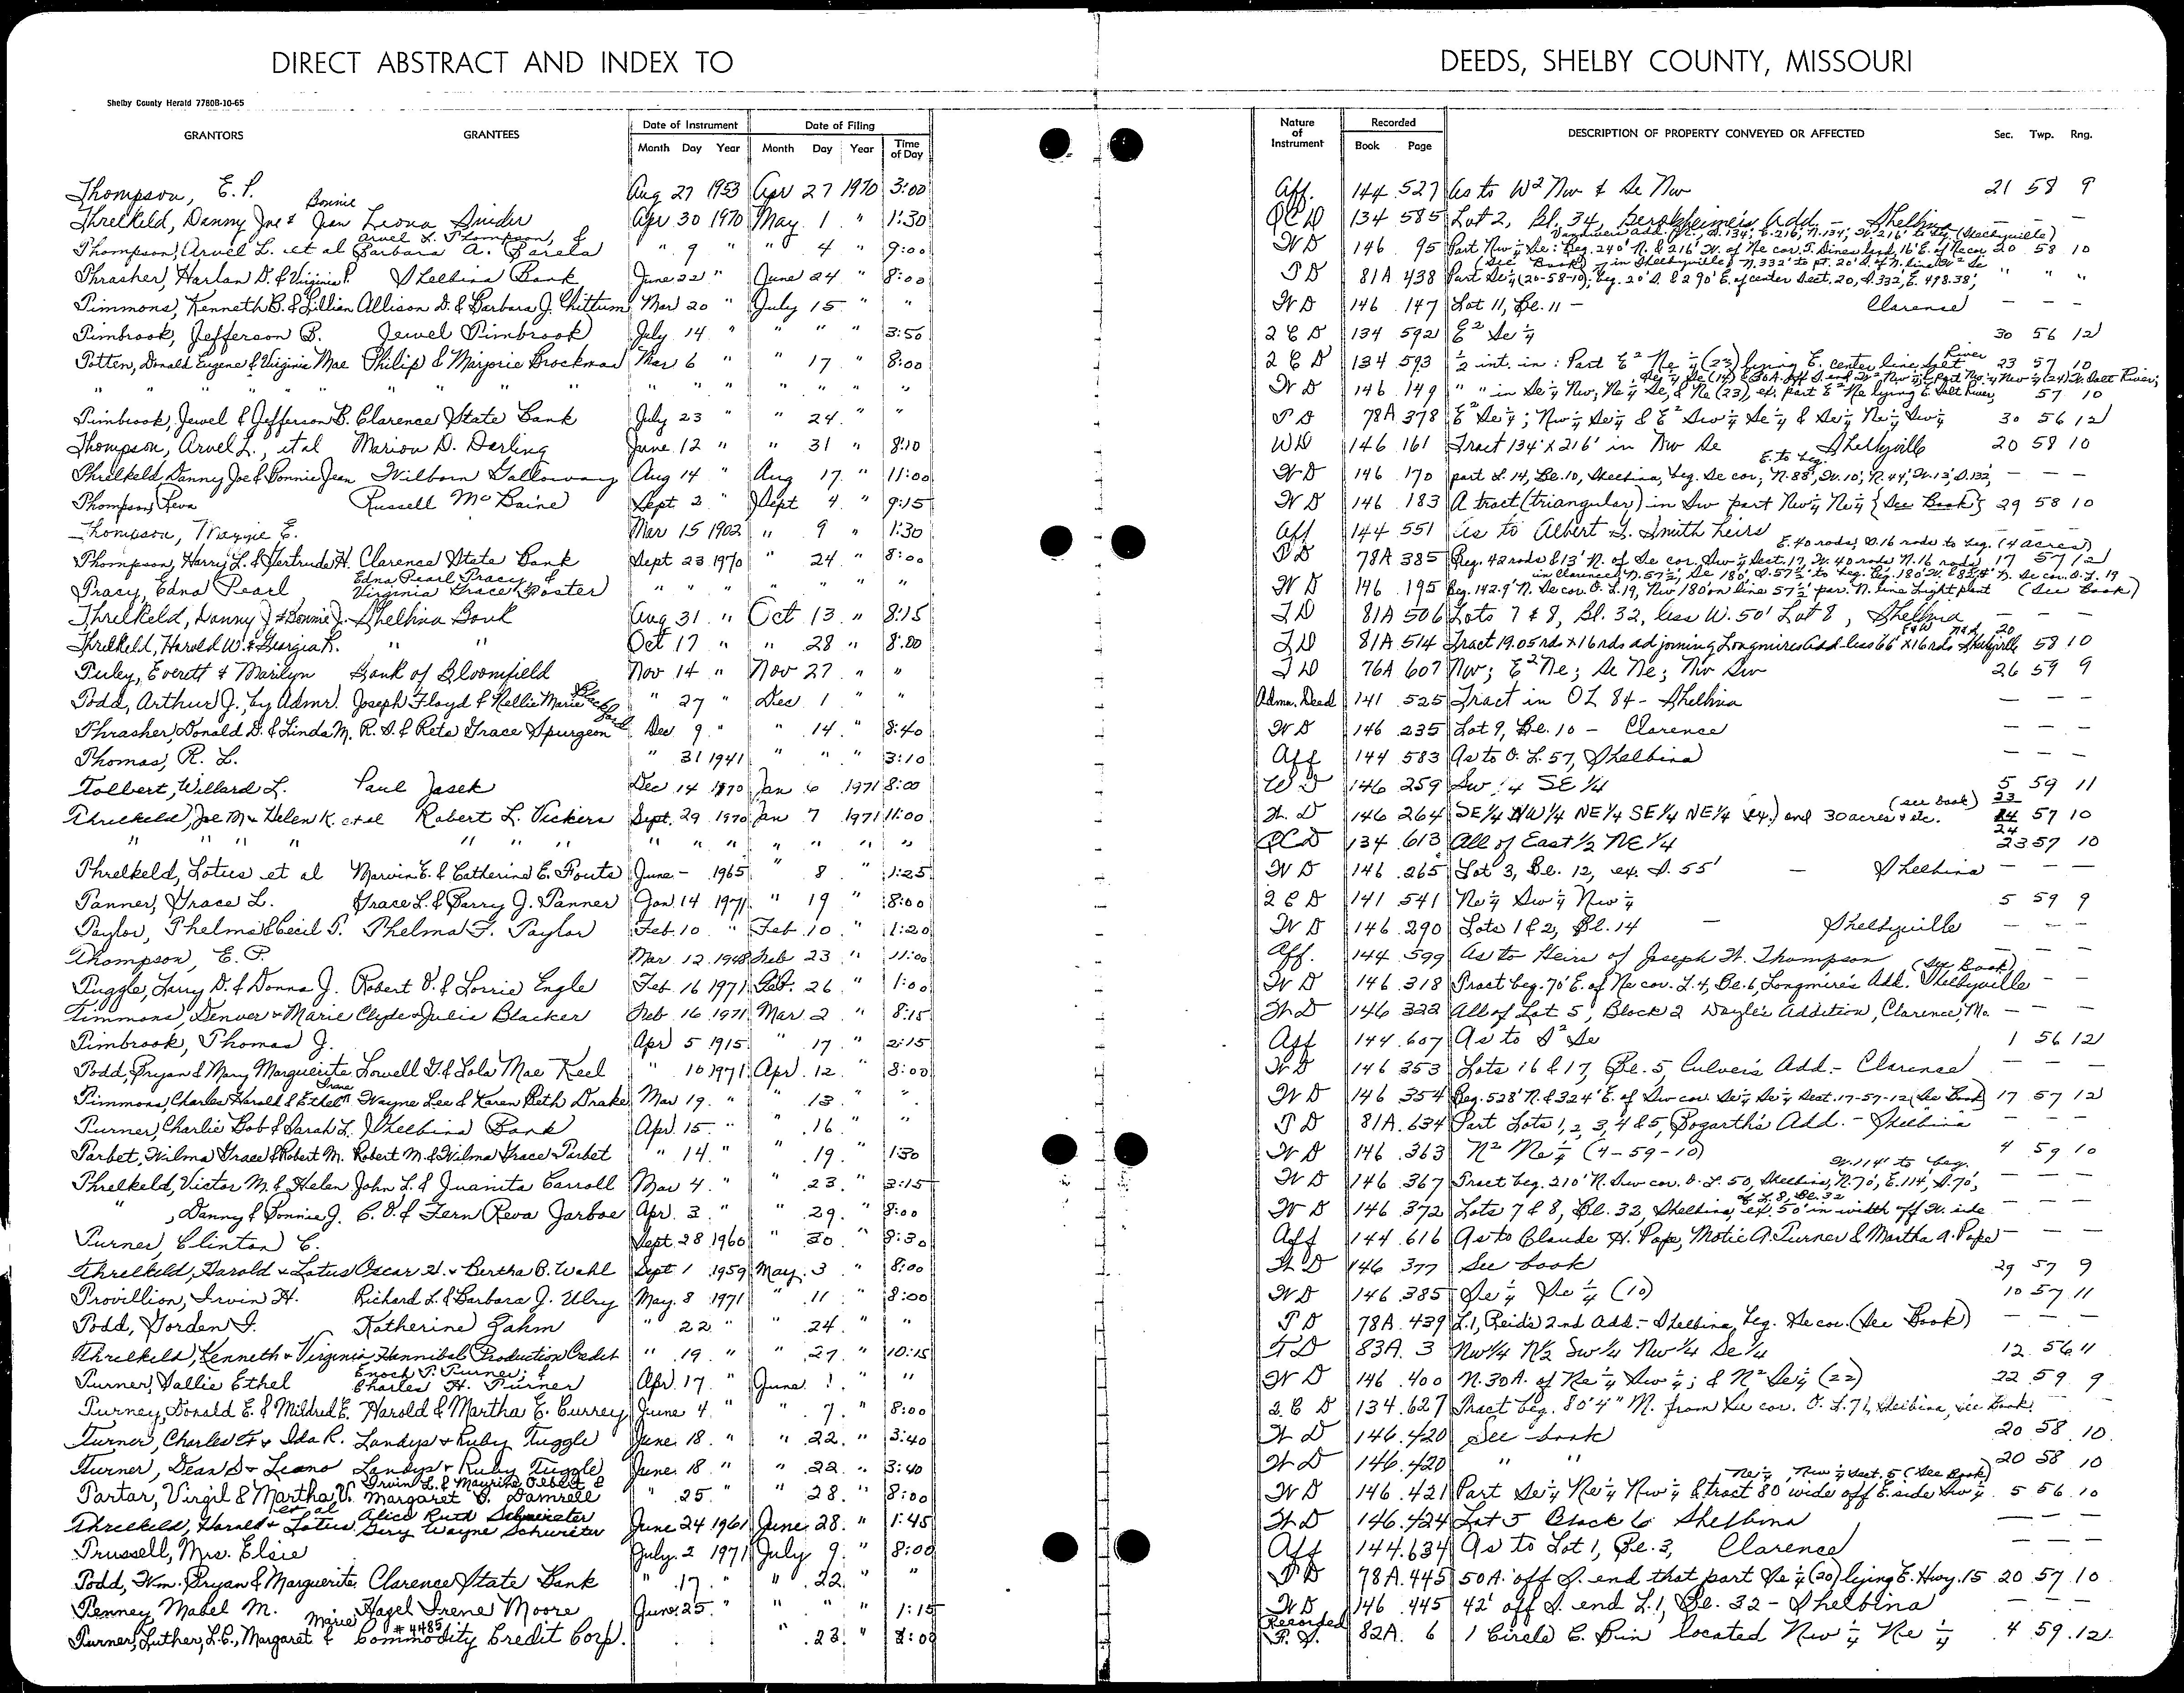 DIRECT ABSTRACT AND INDEX TO DEEDS, SHELBY COUNTY, MISSOURI
Shelby County Herald 7780B-10-65
GRANTORS GRANTEES Date of Instrument Month Day Year Date of Filing Month Day Year Time of Day Nature of Instrument Recorded Book Page DESCRIPTION OF PROPERTY CONVEYED OR AFFECTED Sec. Twp. Rng.
Thompson, E. P. Aug 27 1953 Apr 27 1970 3:00 Aff. 144 527 As to W² Nw & Se Nw 21 58 9
Threlkeld, Danny Joe & Bonnie Jean Leona Snider Apr 30 1970 May 1 " 1:30 QCD 134 585 Lot 2, Bl. 34, Add. - Shelbina — — —
Thompson, Arvel L. et al Arvel L. Thompson, & Barbara A. Barela " 9 " " 4 " 9:00 WD 146 95 Part Nw ¼ Se: Beg. 240' N. & 216' W. of Ne cor. 20 58 10
Thrasher, Harlan D. & Virginia P. Shelbina Bank June 22 " June 24 " 8:00 TD 81A 438 Part Se¼ (20-58-10); beg. 20' S. & 290' E. of center Sect. 20, S. 332', E. 498.38', " " "
Timmons, Kenneth B. & Lillian Allison D. & Barbara J. Chittum Mar 20 " July 15 " WD 146 147 Lot 11, Bl. 11 — Clarence — — —
Timbrook, Jefferson B. Jewel Timbrook July 14 " " " " 3:50 QCD 134 592 E² Se ¼ 30 56 12
Totten, Donald Eugene & Virginia Mae Philip & Marjorie Brockman Mar 6 " " 17 " 8:00 QCD 134 593 ½ int. in: Part E² Ne ¼ (23) lying E. center line Salt River 23 57 10
" " " " " " " " " " " " " WD 146 149 " " in Se ¼ Nw; Ne ¼ Se, & Ne (23), ex. part E² Ne lying E. Salt River, 57 10
Timbrook, Jewel & Jefferson B. Clarence State Bank July 23 " " 24 " " TD 78A 378 E² Se ¼; Nw ¼ Se ¼ & E² Sw ¼ Se ¼ & Se ¼ Ne ¼ Sw ¼ 30 56 12
Thompson, Arvel L., et al Marion D. Derling June 12 " " 31 " 8:10 WD 146 161 Tract 134' x 216' in Nw Se Shelbyville 20 58 10
Threlkeld, Danny Joe & Bonnie Jean Wilborn Galloway Aug 14 " Aug 17 " 11:00 WD 146 170 part L. 14, Bl. 10, Shelbina, beg. Se cor; N. 88', W. 10', N. 44', W. 13', S. 132', E. to beg. — — —
Thompson, Reva Russell McBaine Sept 2 " Sept 4 " 9:15 WD 146 183 A tract (triangular) in Sw part Nw ¼ Ne ¼ {See Book} 29 58 10
Thompson, Maggie E. Mar 15 1902 " 9 " 1:30 Aff 144 551 As to Albert G. Smith heirs — — —
Thompson, Harry L. & Gertrude H. Clarence State Bank Sept 23 1970 " 24 " 8:00 TD 78A 385 Beg. 42 rods & 13' N. of Se cor. Sw ¼ Sect. 17, W. 40 rods N. 16 rods, E. 40 rods, S. 16 rods to beg. (4 acres) 17 57 12
Tracy, Edna Pearl Edna Pearl Tracy & Virginia Grace Foster " " " " " " WD 146 195 Beg. 142.9' N. Se cor. O. L. 19, Nw 180' on line 57½' par. N. line Light plant (See Book)
Threlkeld, Danny J. & Bonnie J. Shelbina Bank Aug 31 " Oct 13 " 8:15 TD 81A 506 Lots 7 & 8, Bl. 32, less W. 50' Lot 8, Shelbina — —
Threlkeld, Harold W. & Georgia R. " " Oct 17 " " 28 " 8:00 TD 81A 514 Tract 19.05 rds x 16 rds adjoining Longmires Add less 66' x 16 rds Shelbyville 20 58 10
Tuley, Everett & Marilyn Bank of Bloomfield Nov 14 " Nov 27 " " TD 76A 607 Nw; E² Ne; Se Ne; Nw Sw 26 59 9
Todd, Arthur J., by Admr. Joseph Floyd & Nellie Marie " 27 " Dec 1 " " Admr. Deed 141 525 Tract in OL 84 - Shelbina — — —
Thrasher, Donald D. & Linda M. R. S. & Reta Grace Spurgeon Dec 9 " " 14 " 8:40 WD 146 235 Lot 9, Bl. 10 - Clarence — — —
Thomas, R. L. " 31 1941 " " " 3:10 Aff 144 583 As to O. L. 57, Shelbina — — —
Tolbert, Willard L. Paul Jasek Dec 14 1970 Jan 6 1971 8:00 WD 146 259 Sw ¼ SE ¼ 5 59 11
Threlkeld, Joe M & Helen K. et al Robert L. Vickers Sept. 29 1970 Jan 7 1971 11:00 WD 146 264 SE¼ NW¼ NE¼ SE¼ NE¼ and 30 acres & etc. (see book) 23 24 57 10
" " " " " " " " " " " " " QCD 134 613 All of East ½ NE ¼ 24 23 57 10
Threlkeld, Lotus et al Marvin E. & Catherine E. Fouts June - 1965 " 8 " 1:25 WD 146 265 Lot 3, Bl. 12, ex. S. 55' — Shelbina — — —
Tanner, Grace L. Grace L. & Barry J. Tanner Jan. 14 1971 " 19 " 8:00 QCD 141 541 Ne ¼ Sw ¼ Nw ¼ 5 59 9
Taylor, Thelma & Cecil T. Thelma F. Taylor Feb. 10 " Feb. 10 " 1:20 WD 146 290 Lots 1 & 2, Bl. 14 — Shelbyville — — —
Thompson, E. P. Mar. 12 1948 Feb 23 " 11:00 Aff. 144 599 As to Heirs of Joseph W. Thompson — —
Tuggle, Larry D. & Donna J. Robert O. & Lorrie Engle Feb 16 1971 Feb. 26 " 1:00 WD 146 318 Tract beg. 70' E. of Ne cor. L. 4, Bl. 6, Longmire's Add. Shelbyville (See Book) — —
Timmons, Denver & Marie Clyde & Julia Blacker Feb. 16 1971 Mar. 2 " 8:15 WD 146 322 All of Lot 5, Block 2 Doyle's Addition, Clarence, Mo. — — —
Timbrook, Thomas J. Apr 5 1915 " 17 " 2:15 Aff 144 607 As to S² Se 1 56 12
Todd, Bryan & Mary Marguerite Lowell G. & Lola Mae Keel " 10 1971 Apr. 12 " 8:00 WD 146 353 Lots 16 & 17, Bl. 5, Culver's Add. - Clarence — — —
Timmons, Charles Harold & Ethel Irene Wayne Lee & Karen Beth Drake Mar 19 " " 13 " " WD 146 354 Beg. 528' N. & 324' E. of Sw cor. Se ¼ Se ¼ Sect. 17-57-12 (See Book) 17 57 12
Turner, Charlie Bob & Sarah L. Shelbina Bank Apr. 15 " " 16 " " TD 81A 634 Part Lots 1, 2, 3, 4 & 5, Bogarth's Add. - Shelbina — — —
Tarbet, Wilma Grace & Robert M. Robert M. & Wilma Grace Tarbet " 14 " " 19 " 1:30 WD 146 363 N² Ne ¼ (4-59-10) 4 59 10
Threlkeld, Victor M. & Helen John L. & Juanita Carroll Mar 4 " " 23 " 3:15 WD 146 367 Tract beg. 210' N. Sw cor. O. L. 50, Shelbina, N. 70', E. 114', S. 70', W. 114' to beg. — — —
" , Danny & Bonnie J. C. O. & Fern Reva Jarboe Apr. 3 " " 29 " 8:00 WD 146 372 Lots 7 & 8, Bl. 32, Shelbina, ex. 50' in width off W. side of L. 8, Bl. 32 — — —
Turner, Clinton C. Sept. 28 1960 " 30 " 8:30 Aff 144 616 As to Claude H. Pope, Motie A. Turner & Martha A. Pope — — —
Threlkeld, Harold & Lotus Oscar H. & Bertha B. Wahl Sept 1 1959 May 3 " 8:00 WD 146 377 See book 29 57 9
Trovillion, Irvin H. Richard L. & Barbara J. Ulry May 8 1971 " 11 " 8:00 WD 146 385 Se ¼ Se ¼ (10) 10 57 11
Todd, Gorden I. Katherine Gahm " 22 " " 24 " " TD 78A 439 L. 1, Reid's 2nd Add. - Shelbina, beg. Se cor. (See Book) — — —
Threlkeld, Kenneth & Virginia Hannibal Production Credit " 19 " " 27 " 10:15 TD 83A 3 Nw¼ N½ Sw¼ Nw¼ Se¼ 12 56 11
Turner, Sallie Ethel Enoch T. Turner, & Charles H. Turner Apr. 17 " June 1 " " WD 146 400 N. 30 A. of Ne ¼ Sw ¼; & N² Se ¼ (22) 22 59 9
Turney, Donald E. & Mildred E. Harold & Martha E. Currey June 4 " " 7 " 8:00 QCD 134 627 Tract beg. 80'4" N. from Se cor. O. L. 71, Shelbina, see Book.
Turner, Charles F. & Ida R. Landys & Ruby Tuggle June 18 " " 22 " 3:40 WD 146 420 See book 20 58 10
Turner, Dean S & Leano Landys & Ruby Tuggle June 18 " " 22 " 3:40 WD 146 420 " " 20 58 10
Tartar, Virgil & Martha V. Irvin L. & Maurine Olbert & Margaret O. Damrell " 25 " " 28 " 8:00 WD 146 421 Part Se ¼ Ne ¼ Nw ¼ & tract 80' wide off E. side Sw ¼ Ne ¼, Nw ¼ Sect. 5 (See Book) 5 56 10
Threlkeld, Harold & Lotus et al Alice Ruth Schwieter Gary Wayne Schwieter June 24 1961 June 28 " 1:45 WD 146 424 Lot 5 Block 6 Shelbina — — —
Trussell, Mrs. Elsie July 2 1971 July 9 " 8:00 Aff 144 634 As to Lot 1, Bl. 3, Clarence — — —
Todd, Wm. Bryan & Marguerite Clarence State Bank " 17 " " 22 " " TD 78A 445 50 A. off S. end that part Se ¼ (20) lying E. Hwy. 15 20 57 10
Tenney Mabel M. Hazel Irene Moore June 25 " " " " 1:15 WD 146 445 42' off S. end L. 1, Bl. 32 - Shelbina — — —
Turner, Luther, L.C., Margaret & Marie #4485 Commodity Credit Corp. " 23 " 8:00 Recorded F. S. 82A 6 1 Circle C. Bin located Nw ¼ Ne ¼ 4 59 12